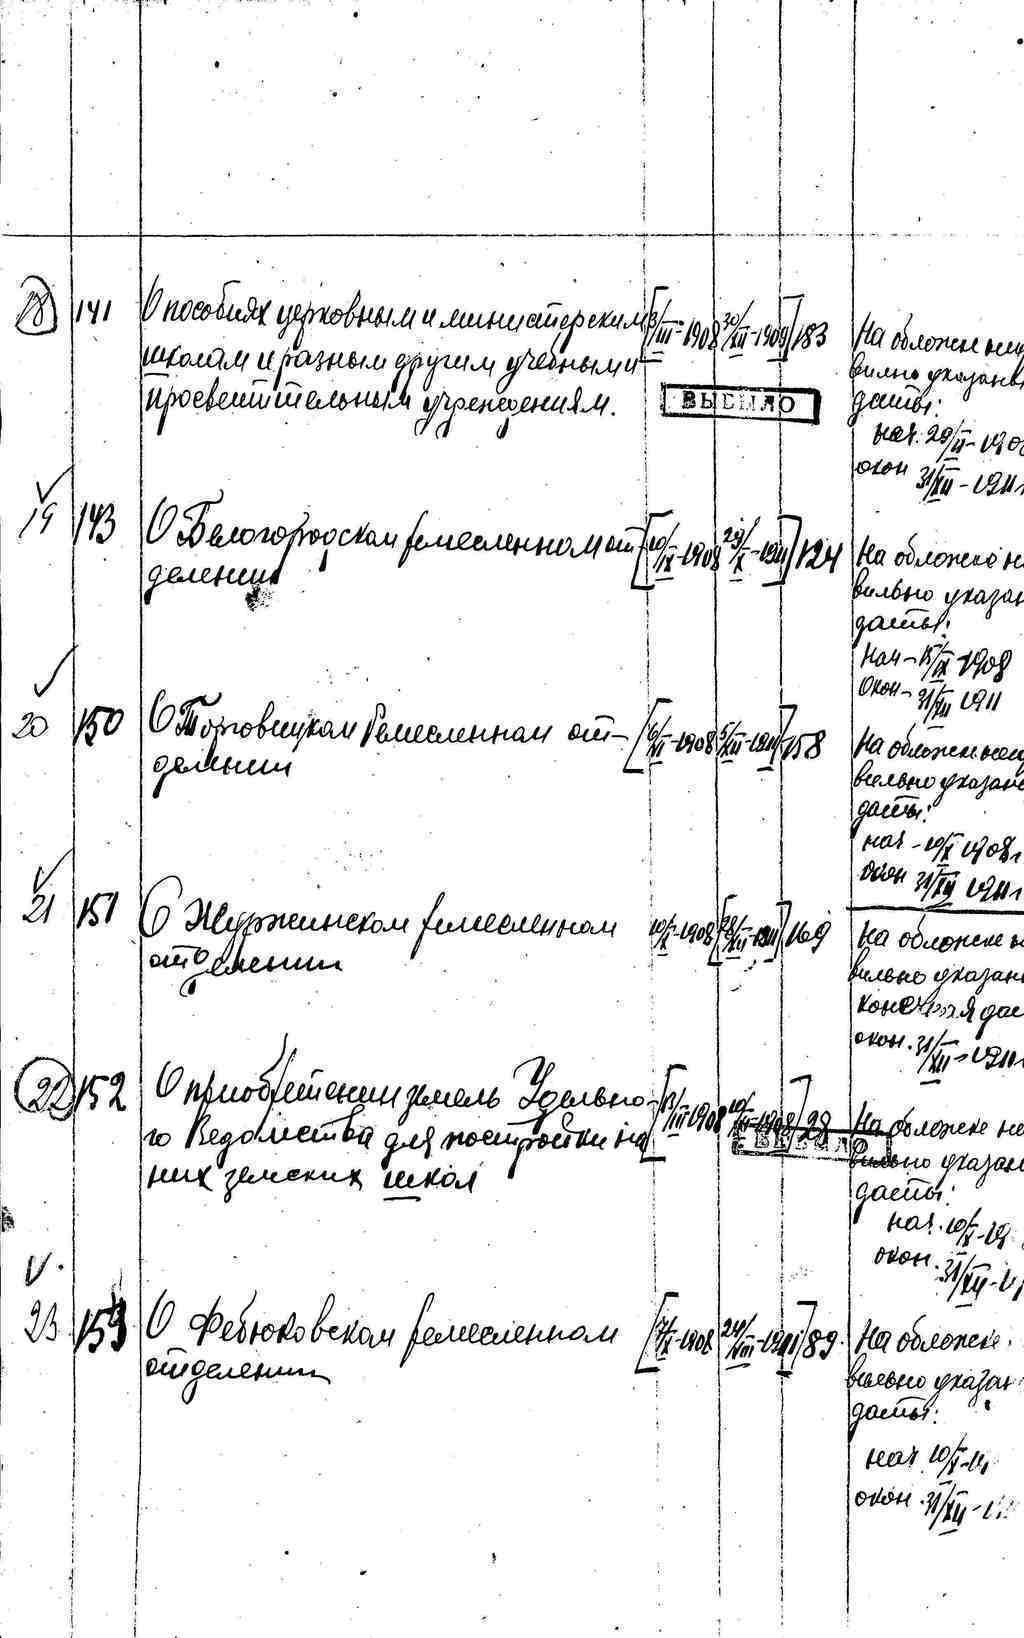 18 141 О пособиях церковным и министерским [3/III-1908 30/XII-1909] 183 На обложке неп
школам и разным другим учебным и вильно указаны
просветительным учреждениям. ВЫБЫЛО даты:
нач. 29/II-190
окон 31/XII-1911г
19 143 О Белогородском ремесленном от [10/IX-1908 29/X-1911] 124 На обложке не
делении вильно указан
даты:
нач-15/IX 1908
Окон-31/XII 1911
20 150 О Торговицком Ремесленном от- [6/XI-1908 5/XII-1911] 158 На обложке неп
делении вильно указан
даты:
нач-10/X 1908г
окон 31/XII 1911г
21 151 О Журжинском ремесленном 10/X-1908 [28/XII-1911] 169 На обложке н
отделении вильно указан
конечная дат
окон. 31/XII-1911г
22 152 О приобретении земель Удельно- [13/III-1908 10/XII-1908] 28 На обложке не
го Ведомства для постройки на ВЫБЫЛО вильно указан
них земских школ даты:
нач. 10/X-19
окон. 31/XII-1
23 153 О Фебюковском ремесленном [7/X-1908 24/VIII-1911] 89. На обложке
отделении вильно указан
даты:
нач 10/X-19
окон. 31/XII-1